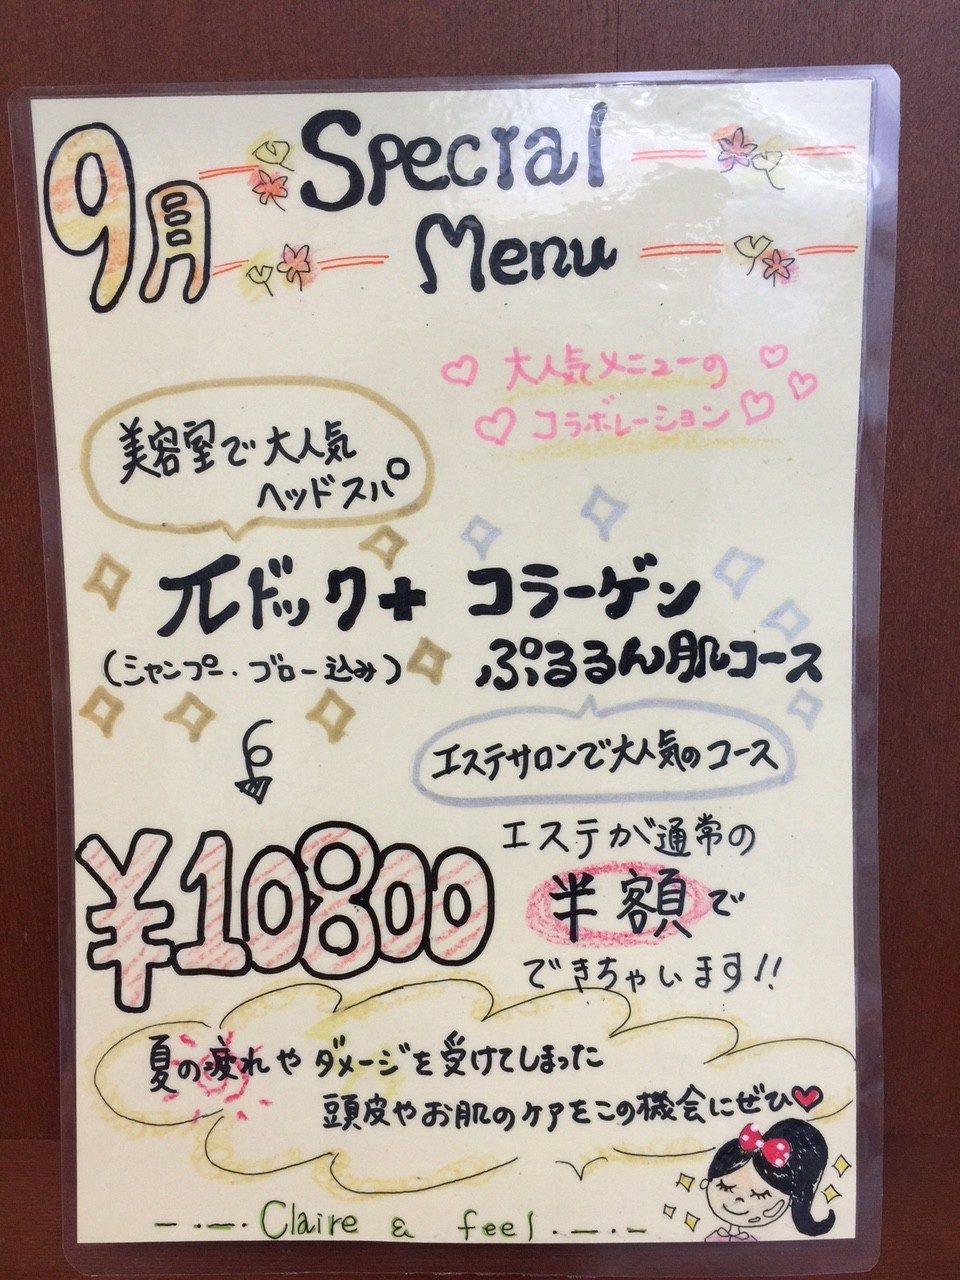 9月 Special
Menu
大人気メニューの
コラボレーション
美容室で大人気
ヘッドスパ
πドック+コラーゲン
ぷるるん肌コース
(シャンプー・ブロー込み)
エステサロンで大人気のコース
¥10800
エステが通常の
半額で
できちゃいます!!
夏の疲れやダメージを受けてしまった
頭皮やお肌のケアをこの機会にぜひ♥
Claire & feel